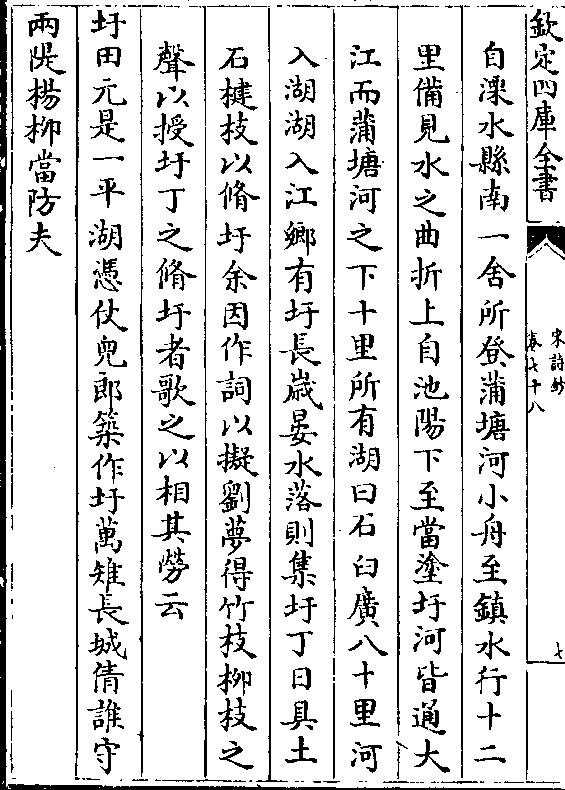 欽定四庫全書
宋詩鈔
卷七十八
七
自溧水縣南一舍所登蒲塘河小舟至鎮水行十二
里備見水之曲折上自池陽下至當塗圩河皆通大
江而蒲塘河之下十里所有湖曰石臼廣八十里河
入湖湖入江鄉有圩長歲晏水落則集圩丁日具土
石楗枝以脩圩余因作詞以擬劉夢得竹枝柳枝之
聲以授圩丁之脩圩者歌之以相其勞云
圩田元是一平湖憑仗兒郎築作圩萬雉長城倩誰守
兩隄楊柳當防夫